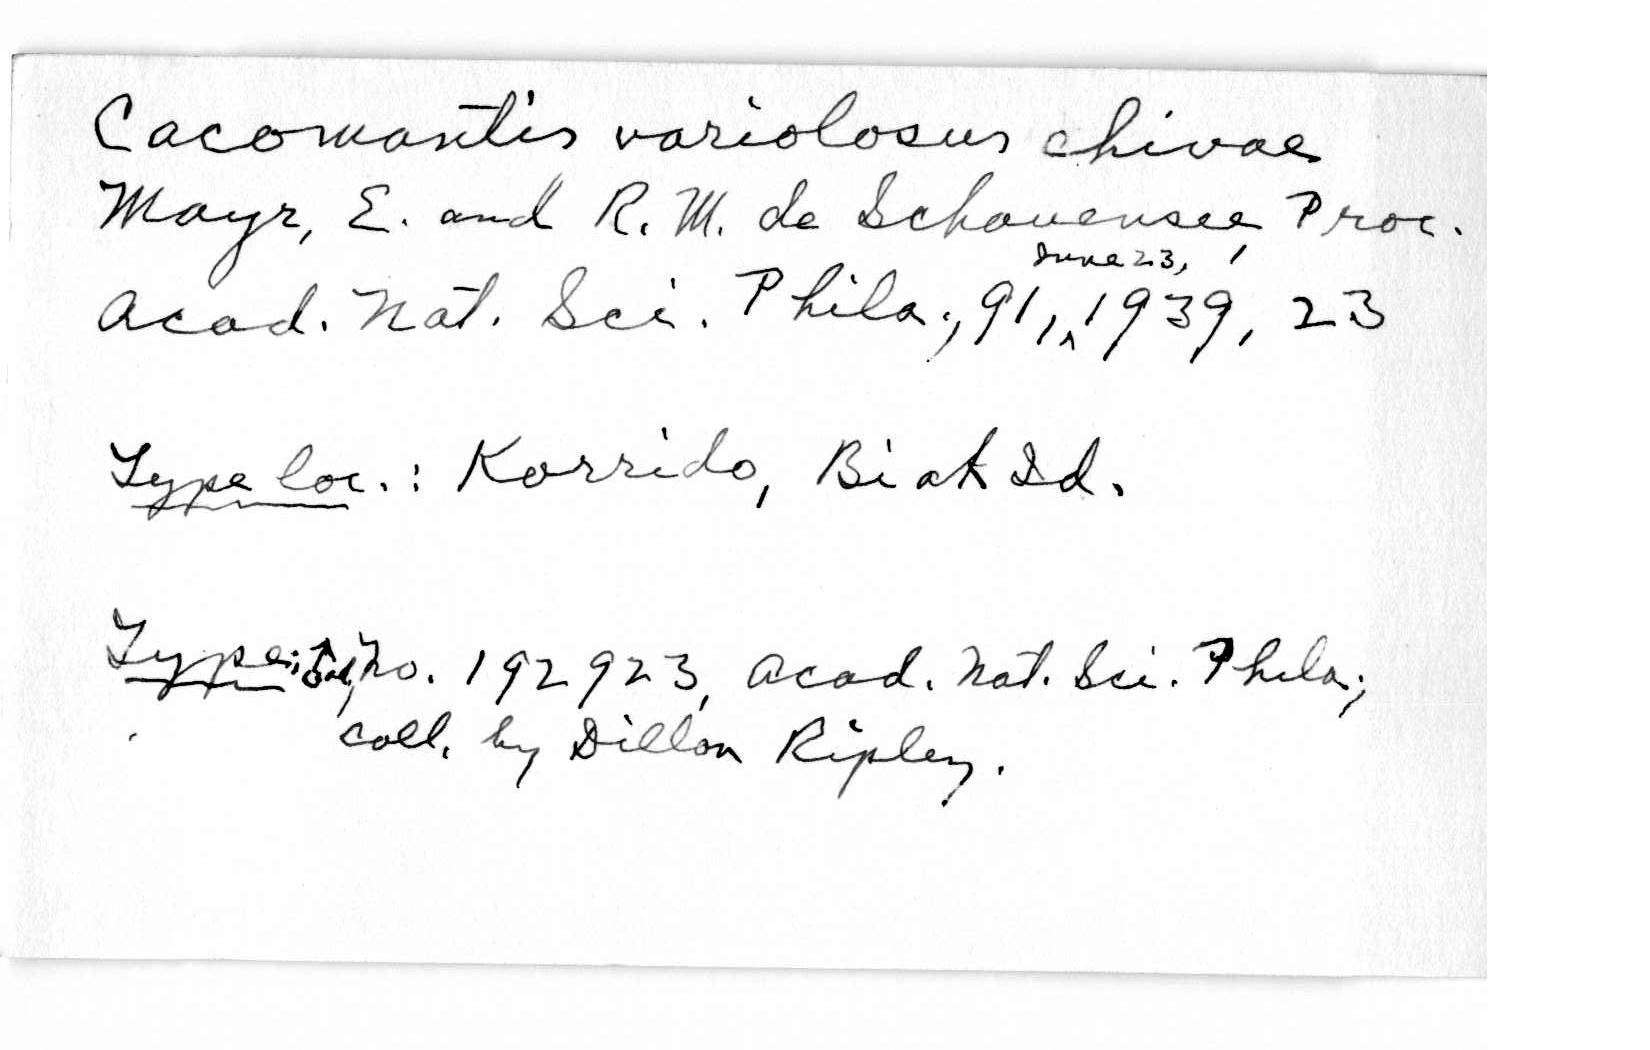 Cacomantis variolosus chivae
Mayr, E. and R. M. de Schauensee, Proc.
Acad. Nat. Sci. Phila., 91, June 23, 1939, 23
Type loc.: Korrido, Biak Id.
Type: ♂ ad, No. 192923, Acad. Nat. Sci. Phila;
coll. by Dillon Ripley.